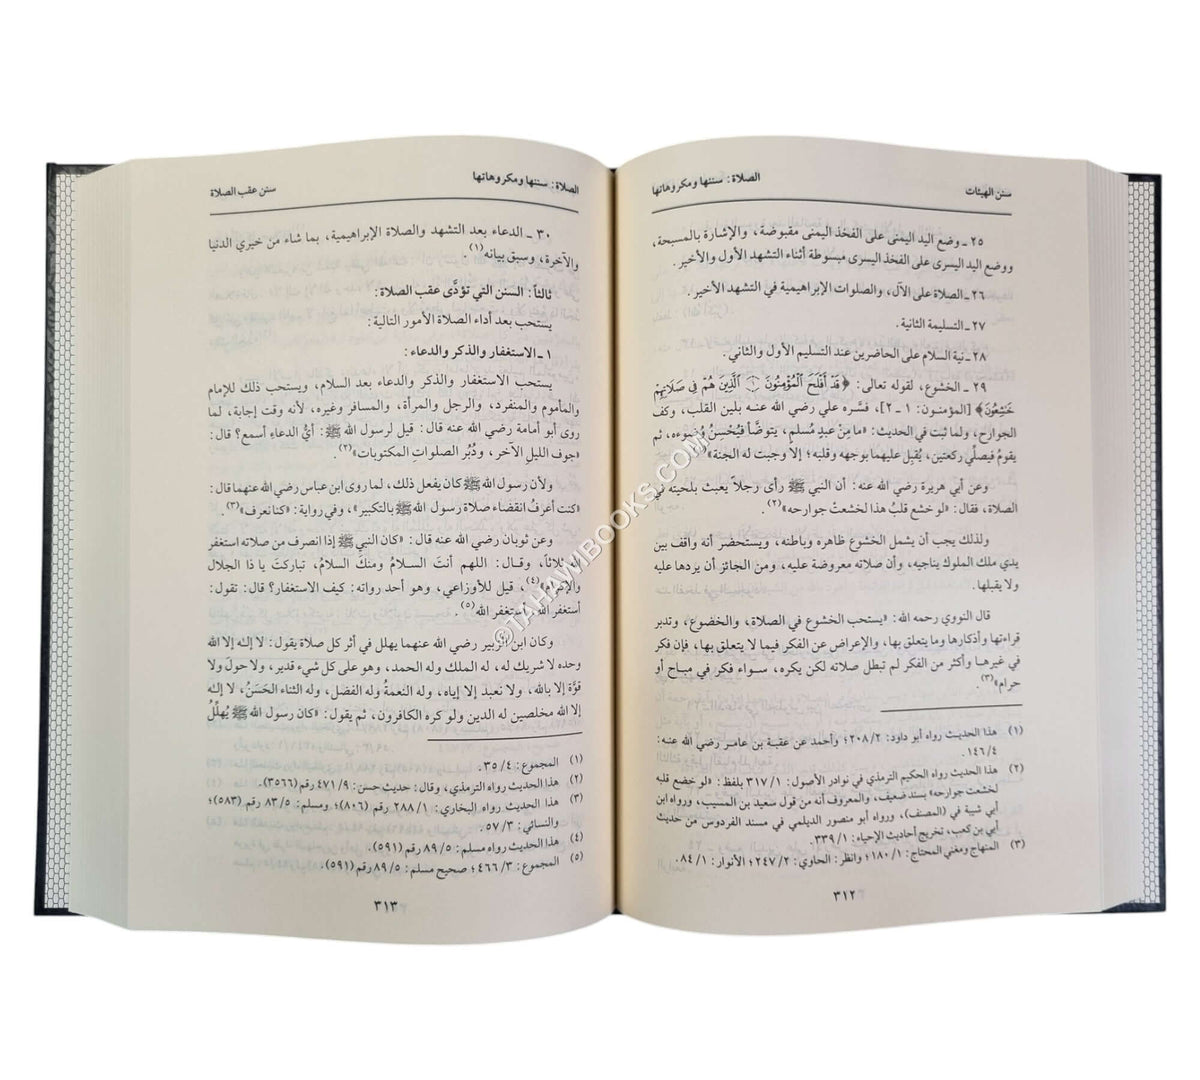 سنن الهيئات
الصلاة : سننها ومكروهاتها
٢٥ ـ وضع اليد اليمنى على الفخذ اليمنى مقبوضة، والإشارة بالمسبحة،
ووضع اليد اليسرى على الفخذ اليسرى مبسوطة أثناء التشهد الأول والأخير .
٢٦ ـ الصلاة على الآل، والصلوات الإبراهيمية في التشهد الأخير .
٢٧ ـ التسليمة الثانية .
٢٨ ـ نية السلام على الحاضرين عند التسليم الأول والثاني .
٢٩ ـ الخشوع، لقوله تعالى: ﴿قَدْ أَفْلَحَ الْمُؤْمِنُونَ ۝١ الَّذِينَ هُمْ فِي صَلَاتِهِمْ
خَاشِعُونَ﴾ [المؤمنون: ١ ـ ٢]، فسَّره علي رضي الله عنه بلين القلب، وكف
الجوارح، ولما ثبت في الحديث: «ما مِنْ عبدٍ مُسلمٍ، يتوضَّأ فيُحْسنُ وُضوءه، ثم
يقومُ فيصلِّي ركعتين، يُقبِل عليهما بوجهه وقلبه؛ إلا وجبت له الجنة»(١)
وعن أبي هريرة رضي الله عنه: أن النبي ﷺ رأى رجلاً يعبث بلحيته في
الصلاة، فقال: «لو خشع قلبُ هذا لخشعتْ جوارحه»(٢) .
ولذلك يجب أن يشمل الخشوع ظاهره وباطنه، ويستحضر أنه واقف بين
يدي ملك الملوك يناجيه، وأن صلاته معروضة عليه، ومن الجائز أن يردها عليه
ولا يقبلها .
قال النووي رحمه الله: «يستحب الخشوع في الصلاة، والخضوع، وتدبر
قراءتها وأذكارها وما يتعلق بها، والإعراض عن الفكر فيما لا يتعلق بها، فإن فكر
في غيرها وأكثر من الفكر لم تبطل صلاته لكن يكره، سواء فكر في مباح أو
حرام»(٣) .
(١) هذا الحديث رواه أبو داود: ٢٠٨/٢؛ وأحمد عن عقبة بن عامر رضي الله عنه:
١٤٦/٤ .
(٢) هذا الحديث رواه الحكيم الترمذي في نوادر الأصول: ٣١٧/١ بلفظ: «لو خضع قلبه
لخشعت جوارحه» بسند ضعيف، والمعروف أنه من قول سعيد بن المسيب، ورواه ابن
أبي شيبة في «المصنف»، ورواه أبو منصور الديلمي في مسند الفردوس من حديث
أبي بن كعب، تخريج أحاديث الإحياء: ٣٣٩/١ .
(٣) المنهاج ومغني المحتاج: ١٨٠/١؛ وانظر: الحاوي: ٢٤٧/٢؛ الأنوار: ٨٤/١ .
٣١٢
الصلاة : سننها ومكروهاتها
سنن عقب الصلاة
٣٠ ـ الدعاء بعد التشهد والصلاة الإبراهيمية، بما شاء من خيري الدنيا
والآخرة، وسبق بيانه(١) .
ثالثاً: السنن التي تؤدَّى عقب الصلاة:
يستحب بعد أداء الصلاة الأمور التالية:
١ ـ الاستغفار والذكر والدعاء:
يستحب الاستغفار والذكر والدعاء بعد السلام، ويستحب ذلك للإمام
والمأموم والمنفرد، والرجل والمرأة، والمسافر وغيره، لأنه وقت إجابة، لما
روى أبو أمامة رضي الله عنه قال: قيل لرسول الله ﷺ: أيُّ الدعاءِ أسمع؟ قال:
«جوف الليلِ الآخر، ودُبُر الصلواتِ المكتوبات»(٢) .
ولأن رسول الله ﷺ كان يفعل ذلك، لما روى ابن عباس رضي الله عنهما قال:
«كنت أعرفُ انقضاء صلاة رسول الله ﷺ بالتكبير»، وفي رواية: «كنا نعرف»(٣) .
وعن ثوبان رضي الله عنه قال: «كان النبي ﷺ إذا انصرف من صلاته استغفر
ثلاثاً، وقال: اللهم أنتَ السلامُ ومنكَ السلامُ، تباركتَ يا ذا الجلال
والإكرام»(٤)، قيل للأوزاعي، وهو أحد رواته: كيف الاستغفار؟ قال: تقول:
أستغفر الله، أستغفر الله(٥) .
وكان ابن الزبير رضي الله عنهما يهلل في أثر كل صلاة يقول: لا إلٰه إلا الله
وحده لا شريك له، له الملك وله الحمد، وهو على كل شيء قدير، ولا حول ولا
قوَّة إلا بالله، ولا نعبد إلا إياه، وله النعمةُ وله الفضل، وله الثناء الحَسَنُ، لا إلٰه
إلا الله مخلصين له الدين ولو كره الكافرون، ثم يقول: «كان رسول الله ﷺ يُهلِّلُ
(١) المجموع: ٣٥/٤ .
(٢) هذا الحديث رواه الترمذي، وقال: حديث حسن: ٤٧١/٩ رقم (٣٥٦٦).
(٣) هذا الحديث رواه البخاري: ٢٨٨/١ رقم (٨٠٦)؛ ومسلم: ٨٣/٥ رقم (٥٨٣)؛
والنسائي: ٥٧/٣ .
(٤) هذا الحديث رواه مسلم: ٨٩/٥ رقم (٥٩١).
(٥) المجموع: ٤٦٦/٣؛ صحيح مسلم: ٨٩/٥ رقم (٥٩١).
٣١٣
©TAHAWIBOOKS.COM